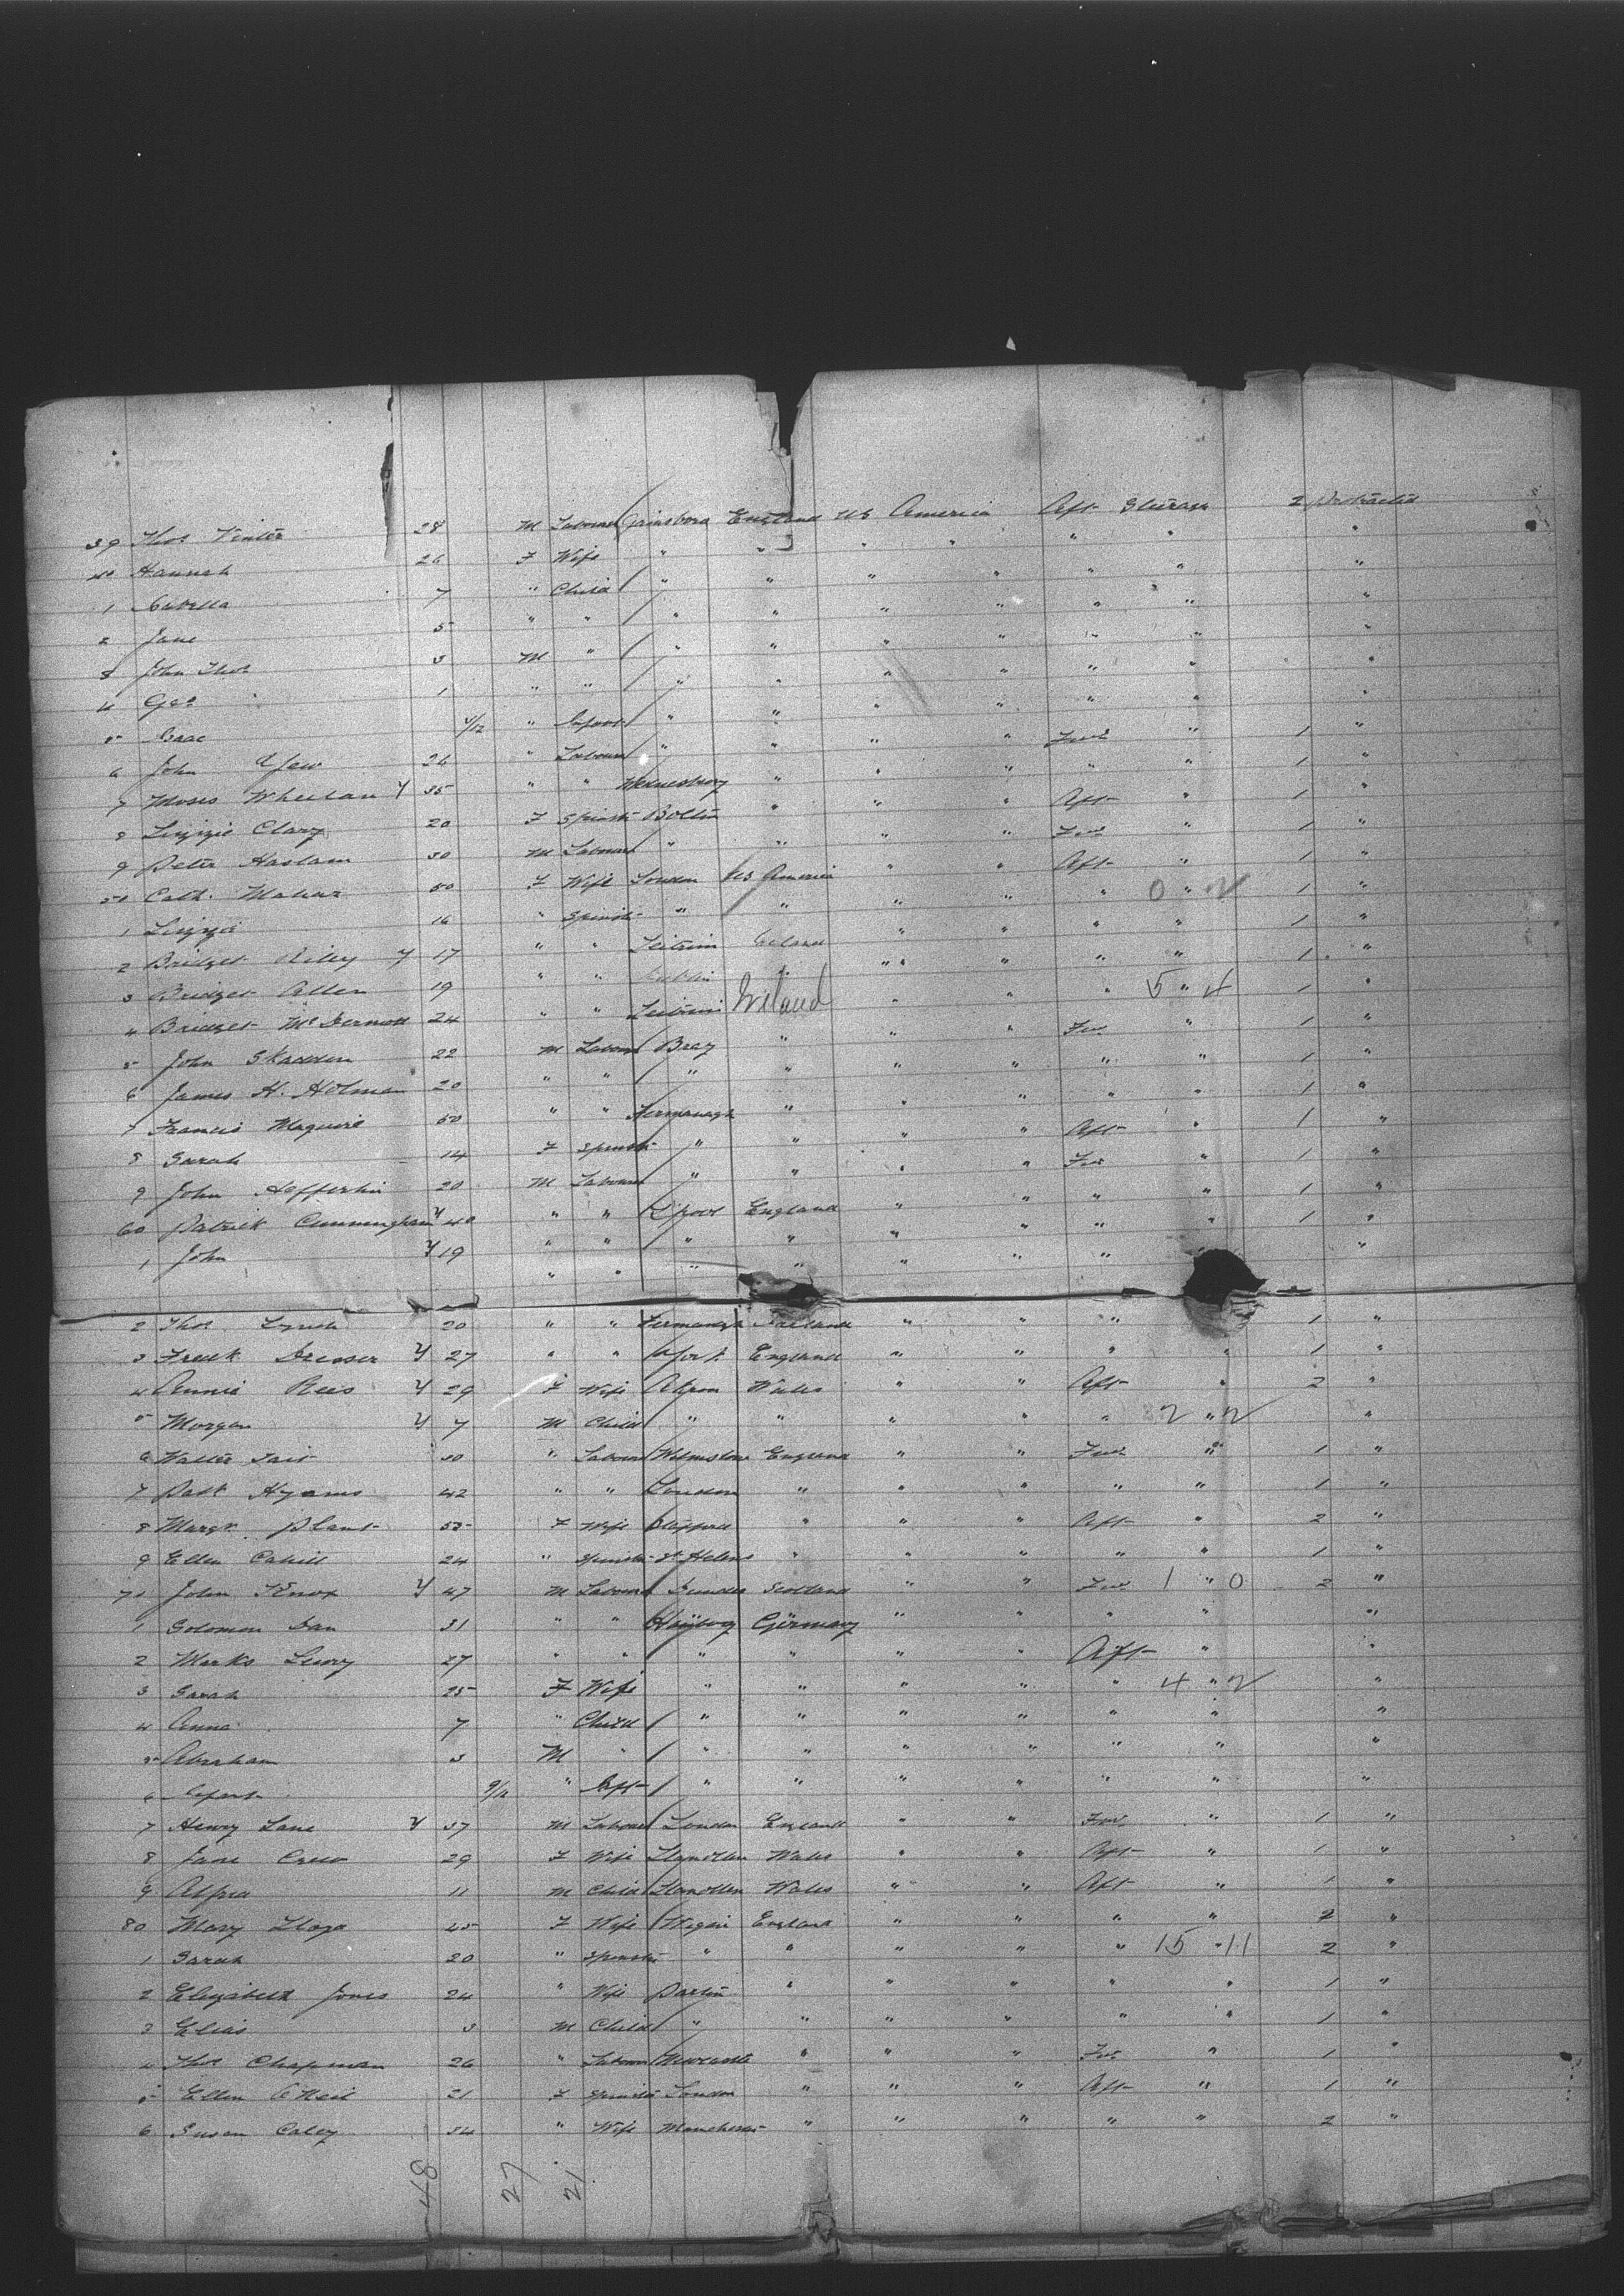 39 Thos Vinter 28 M Labourer Gainsboro England US America Aft Steerage 2 Protracted
40 Hannah 26 F Wife " " " " " " "
1 Isabella 7 " Child " " " " " " "
2 Jane 5 " " " " " " " " "
3 John Thos 3 M " " " " " " " "
4 Geo 1 " " " " " " " " "
5 Isaac 4/12 " Infant " " " " " " "
6 John Yew 26 " Labourer " " " " Fwd " 1 "
7 Moses Wheelan Y 35 " " Wednesbury " " " " " 1 "
8 Lizzie Clary 20 F Spinstr Bolton " " " Aft " 1 "
9 Peter Haslam 30 M Labourer " " " " Fwd " 1 "
50 Cath. Mahar 50 F Wife London US America " " Aft " 1 "
1 Lizzie 16 " Spinstr " " " " " 0 " 2 1 "
2 Bridget Riley Y 17 " " Leitrim Ireland " " " " 1 "
3 Bridget Allen 19 " " Dublin " " " " " 1 "
4 Bridget McDermott 24 " " Leitrim Ireland " " " 5 " 4 1 "
5 John Skadden 22 M Labour Bray " " " Fwd " 1 "
6 James H. Holman 20 " " " " " " " " 1 "
7 Francis Maguire 50 " " Fermanagh " " " " " 1 "
8 Sarah 14 F Spinstr " " " " Aft " 1 "
9 John Hefferlin 20 M Labour " " " " Fwd " 1 "
60 Patrick Cunningham Y 40 " " L'pool England " " " " 1 "
1 John Y 19 " " " " " " " " 1 "
2 Thos Lynch 20 " " Fermanagh Ireland " " " 1 "
3 Fredk Dresser Y 27 " " England " " " " 1 "
4 Annie Rees Y 29 F Wife Wales " " Aft " 2 "
5 Morgan Y 7 M Child " " " " " 2 " 2 "
6 Walter Tait 30 " Labour England " " Fwd " 1 "
7 Patk Hyams 42 " " London " " " " " 1 "
8 Margt Plant F Wife " " " Aft " 2 "
9 Ellen Cahill 24 " Spinstr St Helens " " " " " 1 "
70 John Knox Y 47 M Labour Dundee Scotland " " Fwd 1 " 0 2 "
1 Solomon Dan 31 " " Germany " " " " "
2 Marks Levy 27 " " " " " " Aft " "
3 Sarah 25 F Wife " " " " " 4 " 2 "
4 Anna 7 " Child " " " " " " "
5 Abraham 3 M " " " " " " " "
6 Infant " Inft " " " " " " "
7 Henry Lane Y 37 M Labour London England " " Fwd " 1 "
8 Jane Crew 29 F Wife Wales " " Aft " 1 "
9 Alfred 11 M Child Wales " " Aft " 1 "
80 Mary Lloyd 45 F Wife Wigan England " " " " 2 "
1 Sarah 20 " Spinstr " " " " " 15 " 11 2 "
2 Elizabeth Jones 24 " Wife " " " " " 1 "
3 Elias 3 M Child " " " " " " 1 "
4 Thos Chapman 26 " Labour Newcastle " " " Fwd " 1 "
5 Ellen O'Neil 21 F Spinstr London " " " Aft " 1 "
6 Susan Caley 34 " Wife Manchester " " " " " 2 "
48 27 21